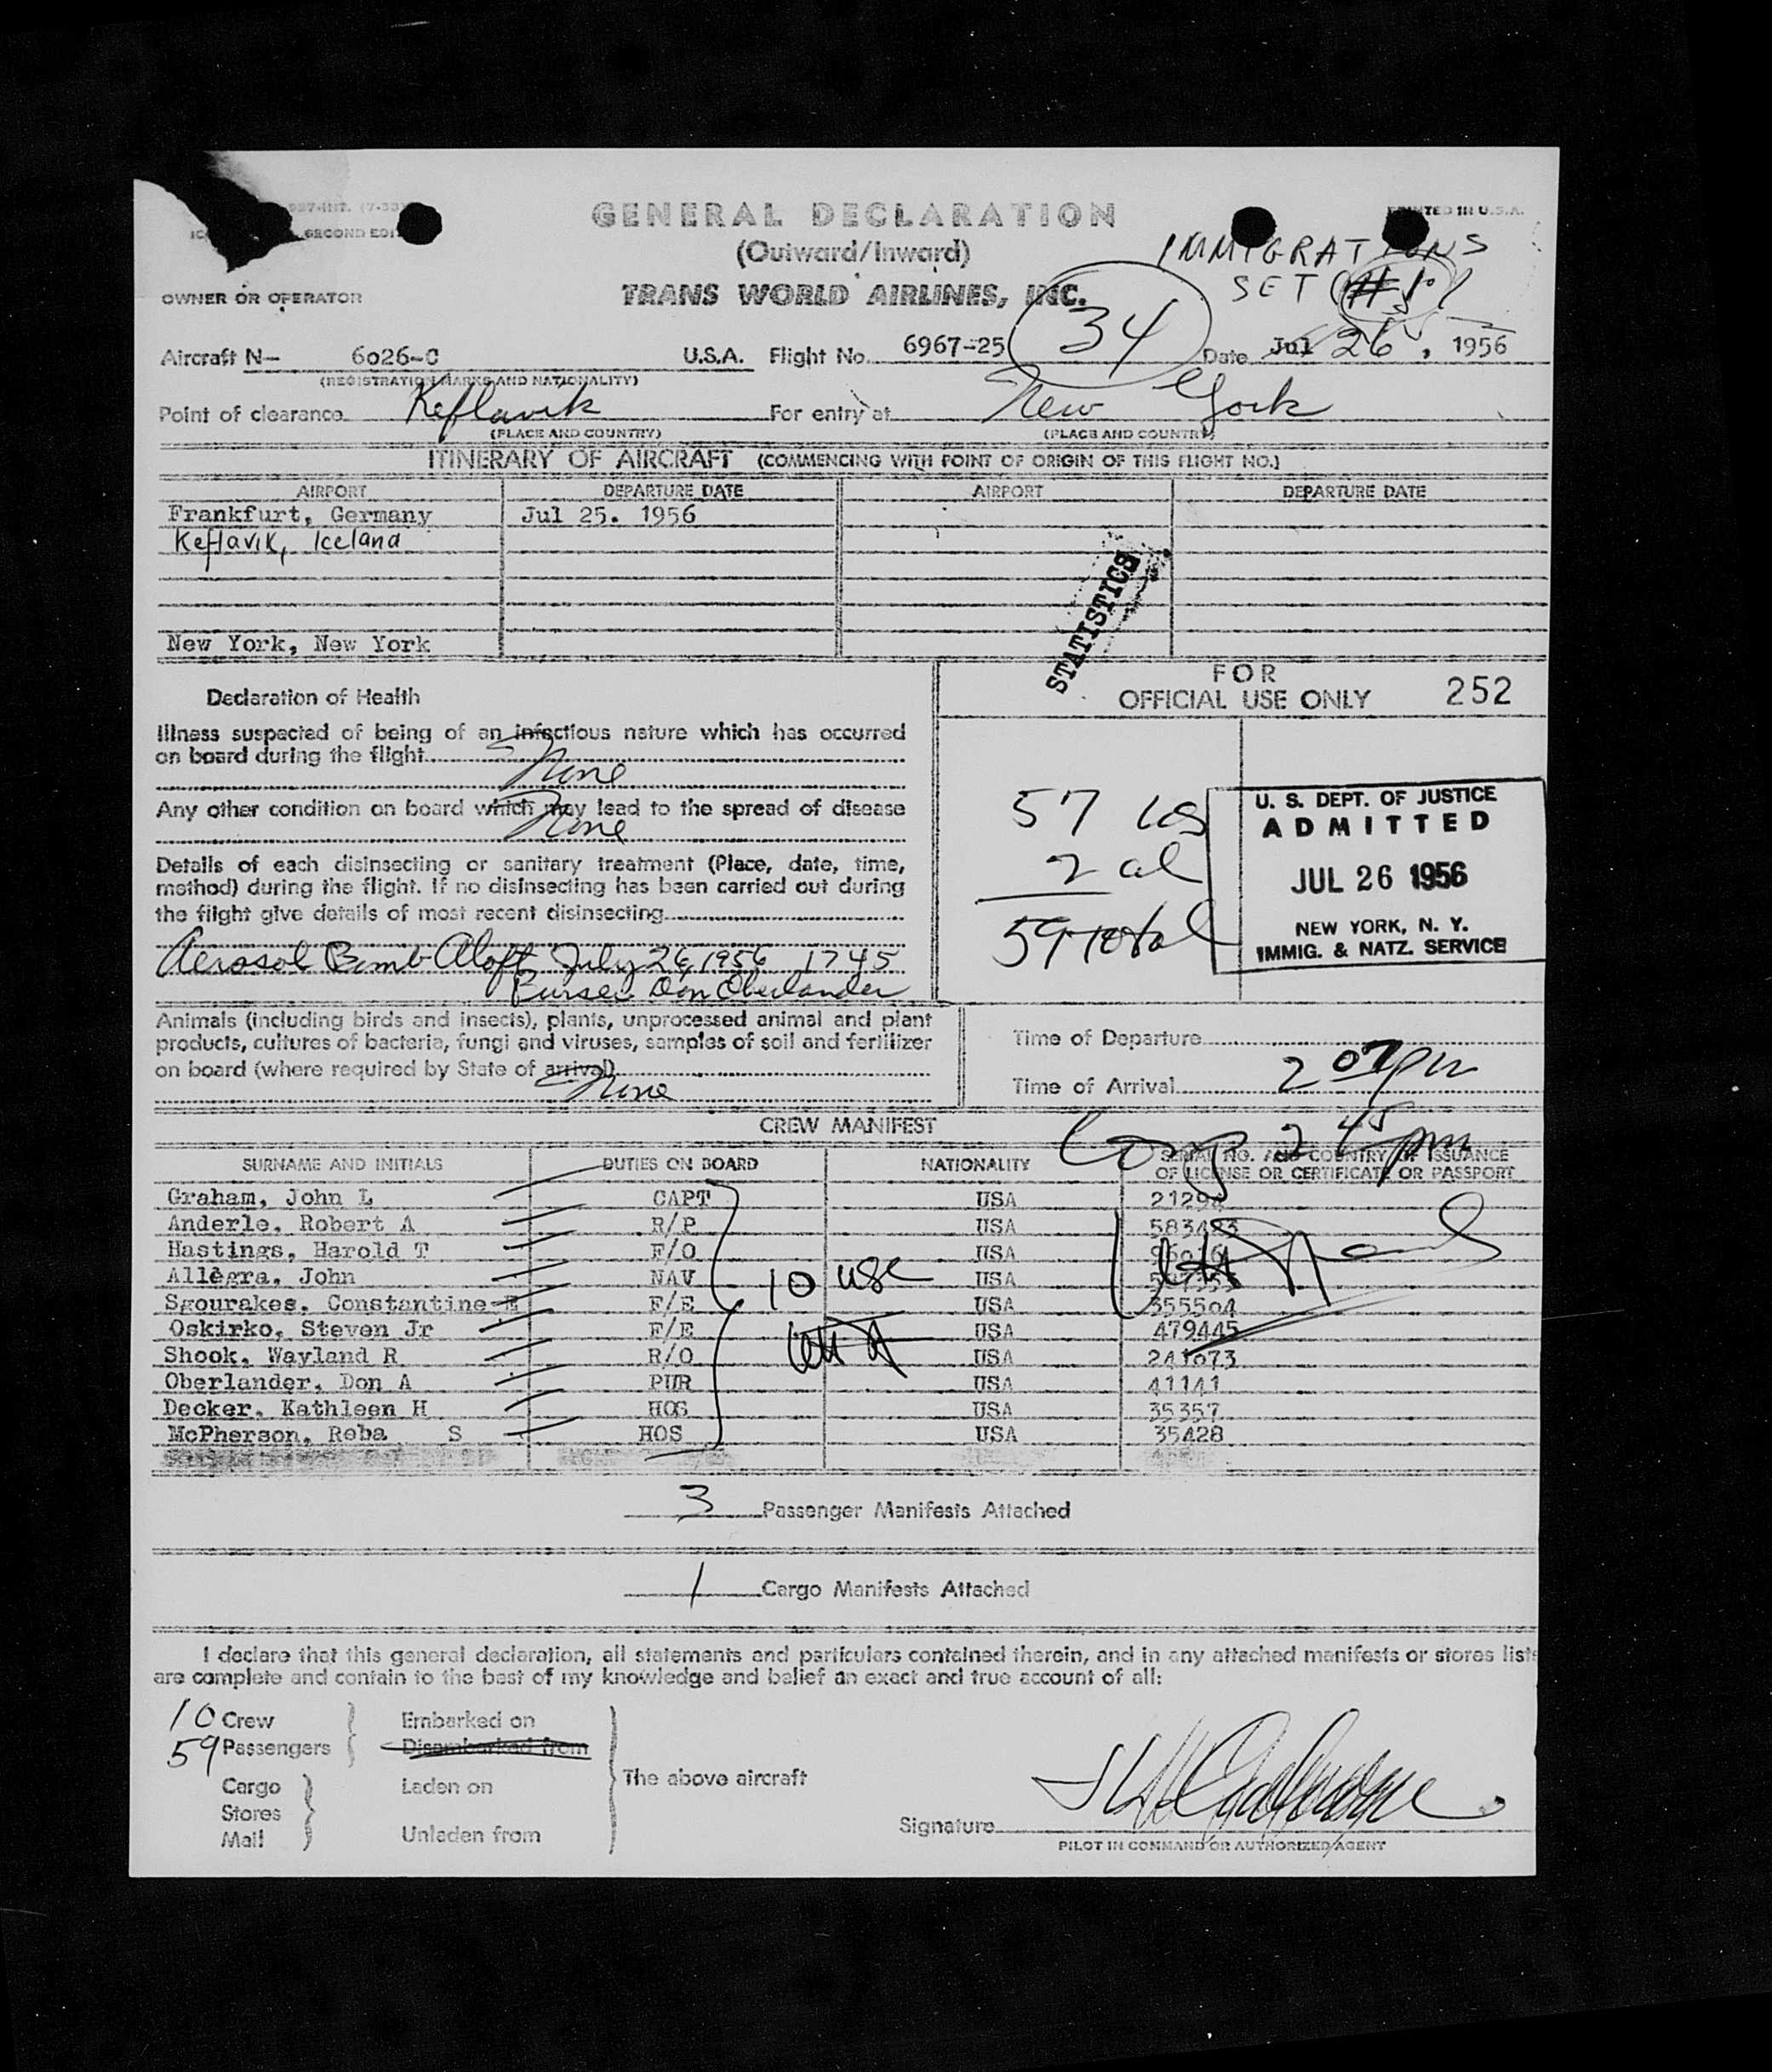 SECOND EDI
GENERAL DECLARATION
(Outward/Inward)
TRANS WORLD AIRLINES, INC.
PRINTED IN U.S.A.
IMMIGRATIONS
SET
OWNER OR OPERATOR
34
Aircraft N- 6026-C U.S.A. Flight No. 6967-25 Date Jul 26, 1956
(REGISTRATION MARKS AND NATIONALITY)
Point of clearance Keflavik For entry at New York
(PLACE AND COUNTRY) (PLACE AND COUNTRY)
ITINERARY OF AIRCRAFT (COMMENCING WITH POINT OF ORIGIN OF THIS FLIGHT NO.)
AIRPORT DEPARTURE DATE AIRPORT DEPARTURE DATE
Frankfurt, Germany Jul 25. 1956
Keflavik, Iceland
STATISTICS
New York, New York
FOR
OFFICIAL USE ONLY 252
Declaration of Health
Illness suspected of being of an infectious nature which has occurred
on board during the flight
None
Any other condition on board which may lead to the spread of disease
None
Details of each disinsecting or sanitary treatment (Place, date, time,
method) during the flight. If no disinsecting has been carried out during
the flight give details of most recent disinsecting
Aerosol Bomb Aloft July 26, 1956 1745
Purser Don Oberlander
57 us
2 al
59 total
U. S. DEPT. OF JUSTICE
ADMITTED
JUL 26 1956
NEW YORK, N. Y.
IMMIG. & NATZ. SERVICE
Animals (including birds and insects), plants, unprocessed animal and plant
products, cultures of bacteria, fungi and viruses, samples of soil and fertilizer
on board (where required by State of arrival)
None
Time of Departure
Time of Arrival 2 07 pm
CREW MANIFEST
2 45 pm
SURNAME AND INITIALS DUTIES ON BOARD NATIONALITY SERIAL NO. AND COUNTRY OF ISSUANCE
OF LICENSE OR CERTIFICATE OR PASSPORT
Graham, John L CAPT USA
Anderle, Robert A R/P USA 583493
Hastings, Harold T F/O USA
Allegra, John NAV USA
10 usc
Sgourakes, Constantine E F/E USA 355504
Oskirko, Steven Jr F/E USA 479445
Shook, Wayland R R/O USA 241073
Oberlander, Don A PUR USA 41141
Decker, Kathleen H HOS USA 35357
McPherson, Reba S HOS USA 35428
3 Passenger Manifests Attached
1 Cargo Manifests Attached
I declare that this general declaration, all statements and particulars contained therein, and in any attached manifests or stores lists
are complete and contain to the best of my knowledge and belief an exact and true account of all:
10 Crew Embarked on
59 Passengers Disembarked from
The above aircraft
Cargo Laden on
Stores
Mail Unladen from
Signature
PILOT IN COMMAND OR AUTHORIZED AGENT